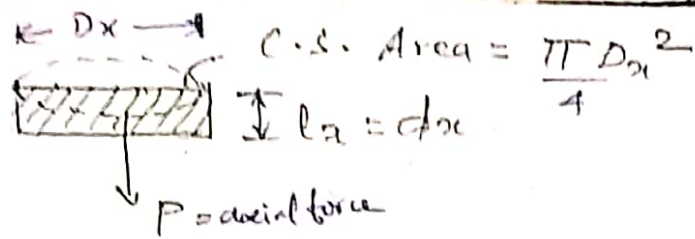 Dx
C.S. Area = π/4 Dx²
lx = dx
P = axial force